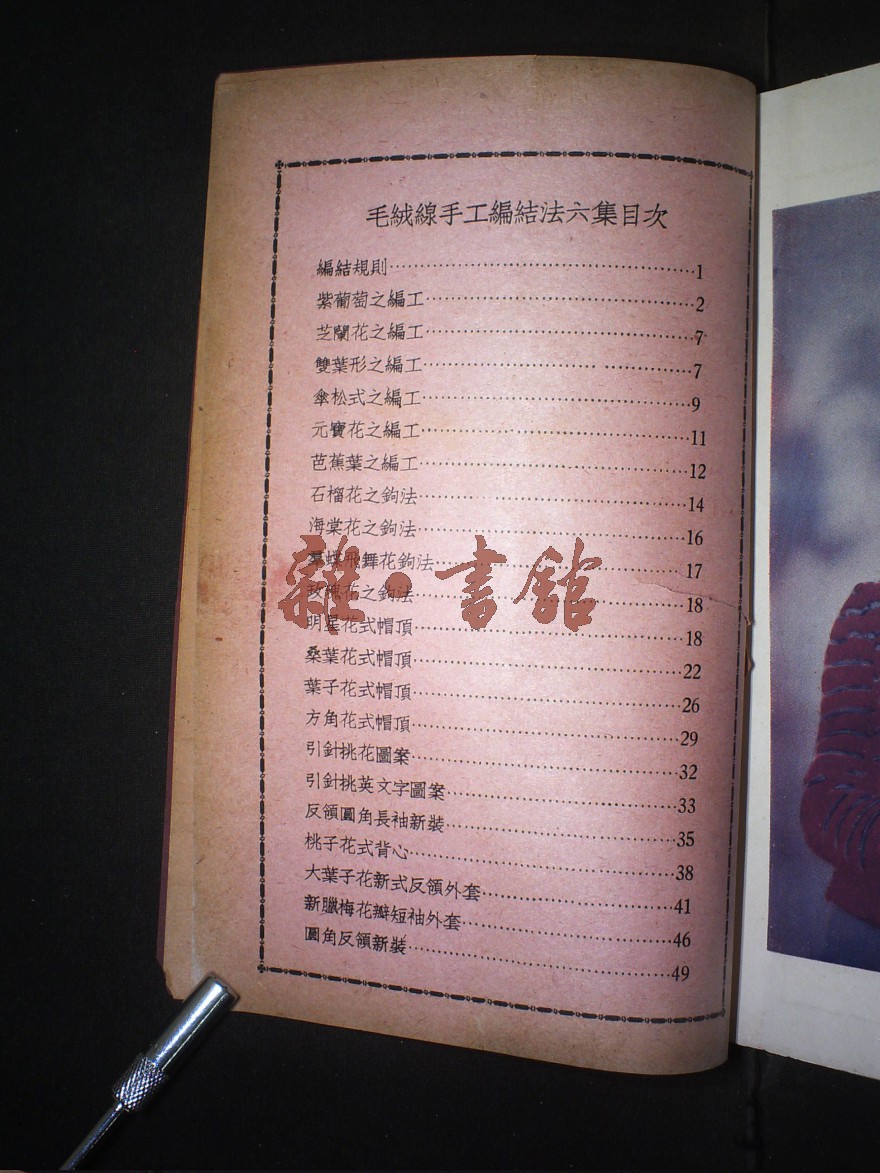 毛絨線手工編結法六集目次
編結規則………1
紫葡萄之編工………2
芝蘭花之編工………7
雙葉形之編工………7
傘松式之編工………9
元寶花之編工………11
芭蕉葉之編工………12
石榴花之鉤法………14
海棠花之鉤法………16
羣蝶飛舞花鉤法………17
玫瑰花之鉤法………18
明星花式帽頂………18
桑葉花式帽頂………22
葉子花式帽頂………26
方角花式帽頂………29
引針挑花圖案………32
引針挑英文字圖案………33
反領圓角長袖新裝………35
桃子花式背心………38
大葉子花新式反領外套………41
新臘梅花瓣短袖外套………46
圓角反領新裝………49
雜·書館